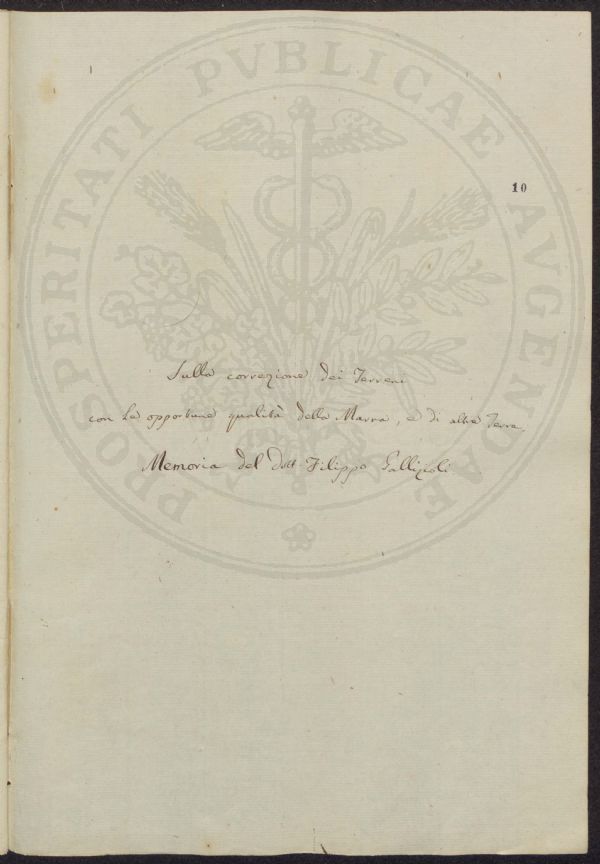 PROSPERITATI PVBLICAE AVGENDAE
10
Sulla correzione dei Terreni
con le opportune qualità della Marna, e di altre Terre,
Memoria del Dott Filippo Gallizioli